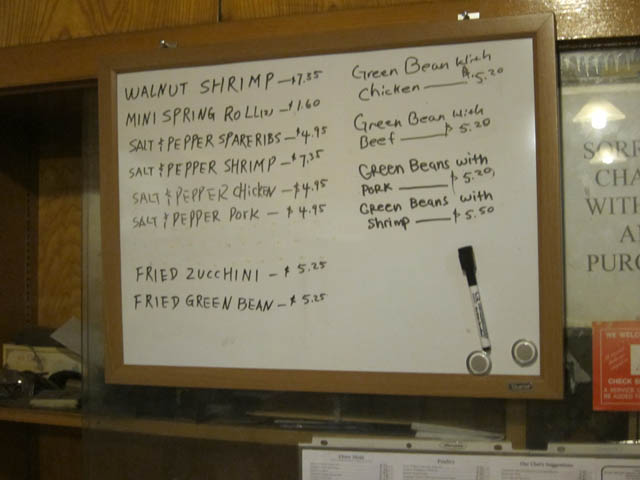 WALNUT SHRIMP - $7.35
MINI SPRING ROLL(2) - $1.60
SALT & PEPPER SPARERIBS - $4.95
SALT & PEPPER SHRIMP - $7.35
SALT & PEPPER CHICKEN - $4.95
SALT & PEPPER PORK - $4.95
FRIED ZUCCHINI - $5.25
FRIED GREEN BEAN - $5.25
Green Bean With
Chicken — $5.20
Green Bean With
Beef — $5.20
Green Beans with
PORK — $5.20
Green Beans with
Shrimp — $5.50
SORR
CHA
WITH
A
PURC
WE WELC
CHECK
A SERVICE
BE ADDED
Poultry
Our Chef's Suggestions